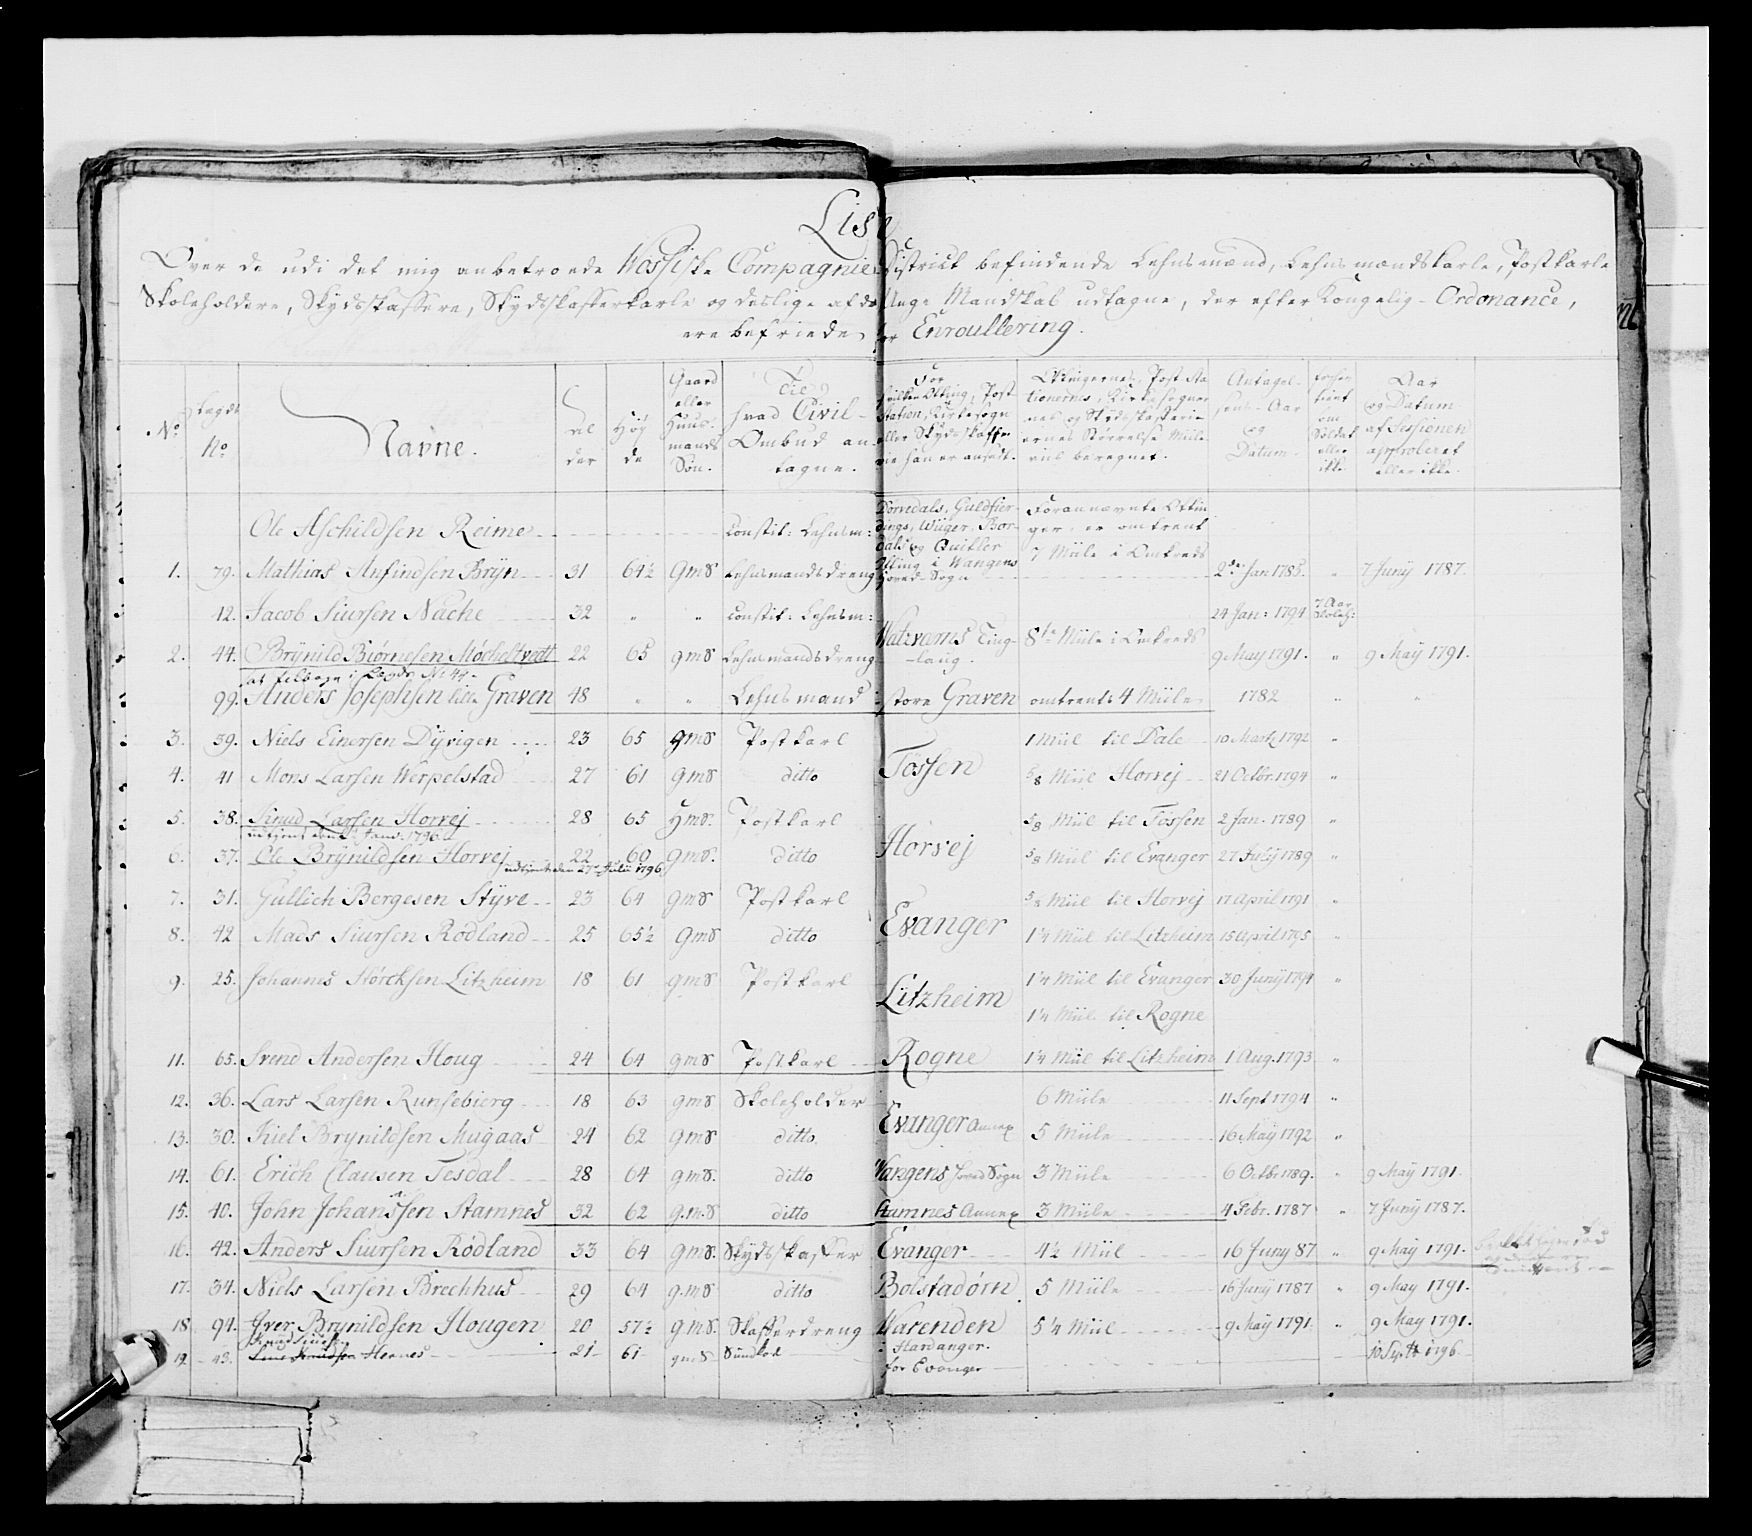 Liste
Over de udi det mig anbetroede Wossiske Compagnie District befindende Lehnsmænd, Lehnsmændskarle, Postkarle
Skoleholdere, Skydsskaffere, Skydsskafferkarle og deslige af det Unge Mandskab udtagne, der efter Kongelig Ordonance,
ere befriede for Enroullering.
No | Lægdts No | Navne. | Alder | Høyde | Gaard eller Huusmands Søn. | Til hvad Civil-Ombud antagne. | For hvilken Otting, Post Station, Kirkesogn eller Skydsskafferie han er ansadt. | Ottingernes, Post Stationernes, Kirkesognernes og Skydsskafferiernes Størrelse Miileviis beregnet. | Antagelsens-Aar og Datum. | forhen tient som Soldat eller ikke. | Aar og Datum af Sessionen approberet eller ikke.
Ole Aschildsen Reime | Constit: Lehnsm: | Dørvedals, Guldfierdings, Wiiger, Bordals og Quitler Otting i Wangens Hoved Sogn | Forannævnte Ottinger, er omtrent 7 Miile i Omkreds
1. | 79. | Mathias Anfindsen Bryn | 31 | 64½ | GmS | Lehnsmandsdreng | 2den Jan 1785. | " | 7 Junÿ 1787.
12. | Jacob Siursen Nache | 32 | " | " | Constit: Lehnsm: | 24 Jan: 1794 | 7 Aar
2. | 44. | Brÿnild Biørnesen Møcheltvedt | 22 | 65 | gmS | Lehnsmandsdreng | Watzvarns Tinglaug. | 8te Miile i Omkreds | 9 May 1791. | " | 9 Maÿ 1791.
sat tilbage i Lægde No 44.
99. | Anders Josephsen lille Graven | 48 | " | " | Lehnsmand | store Graven | omtrent 4 Miile | 1782 | " | "
3. | 39. | Niels Einersen Dÿvigen | 23 | 65 | gmS | Postkarl | Fossen | 1 Miil til Dale | 10 Martz 1792 | "
4. | 41 | Mons Larsen Werpelstad | 27 | 61 | gmS | ditto | ⅝ Miil Horvej | 21 Octbr. 1794 | "
5. | 38. | Knud Larsen Horvej | 28 | 65 | HmS. | Postkarl | Horvej | ⅝ Miil til Fossen | 2 Jan. 1789 | "
udtient den 2 Janv. 1796
6. | 37. | Ole Brÿnildsen Horvej | 22 | 60 | gmS. | ditto | ⅝ Miil til Evanger | 27 Julÿ 1789 | "
udtient den 27de Julii 1796
7. | 31. | Gullich Bergesen Stÿve | 23 | 64 | gmS | Postkarl | Evanger | ⅝ Miil til Horvej | 17 April 1791 | "
8. | 42 | Mads Siursen Rødland | 25 | 65½ | GmS | ditto | 1¼ Miil til Litzheim | 15 April 1795 | "
9. | 25. | Johannes Størcksen Litzheim | 18 | 61 | gmS | Postkarl | Litzheim | 1¼ Miil til Evanger | 30 Junÿ 1794 | "
1¼ Miil til Rogne
11. | 65. | Svend Andersen Houg | 24 | 64 | gmS | Postkarl | Rogne | 1¼ Miil til Litzheim | 1 Aug. 1793 | "
12. | 36. | Lars Larsen Runsebierg | 18 | 63 | gmS | Skoleholder | Evanger Annex | 6 Miile | 11 Sept 1794 | "
13. | 30. | Kiel Brynildsen Mugaas | 24 | 62 | gmS | ditto | 5 Miile | 16 Maÿ 1792 | "
14. | 61. | Erich Clausen Tesdal | 28 | 64 | gmS. | ditto | Wangens Hoved Sogn | 3 Miile | 6 Octbr 1789. | " | 9 Maÿ 1791.
15. | 40. | John Johanssen Stamnes | 32 | 62 | g.m.S | ditto | Stamnes Annex | 3 Miile | 4 Febr. 1787 | " | 7 Junÿ 1787.
16. | 42. | Anders Siursen Rødland | 33 | 64 | gmS. | Skydsskaffer | Evanger | 4½ Miil | 16 Juny 87 | " | 9 May 1791.
17. | 34. | Niels Larsen Brechhus | 29 | 64 | g.mS | ditto | Bolstadørn | 5 Miile | 16 Juny 1787 | " | 9 May 1791.
18 | 91. | Iver Brynildsen Hougen | 20 | 57½ | gmS. | Skafferdreng | Warenden i Hardanger. | 5¼ Miil | 9 Maÿ 1791 | " | 9 May 1791.
Knud Siursen
19. | 43. | Hernes | 21 | 61 | gmS | Sundkarl | for Evanger | 10 Septbr 1796